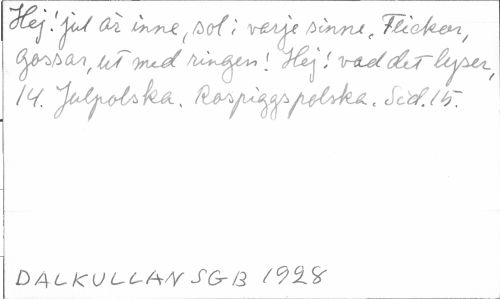 Hej! jul är inne, sol i varje sinne. Flickor,
gossar, ut med ringen! Hej! vad det lyser,
14. Julpolska. Rospiggspolska. Sid. 15.
DALKULLAN SGB 1928